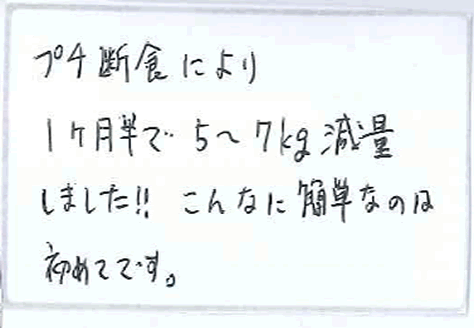 プチ断食により
1ヶ月半で 5〜7kg減量
しました!! こんなに簡単なのは
初めてです。